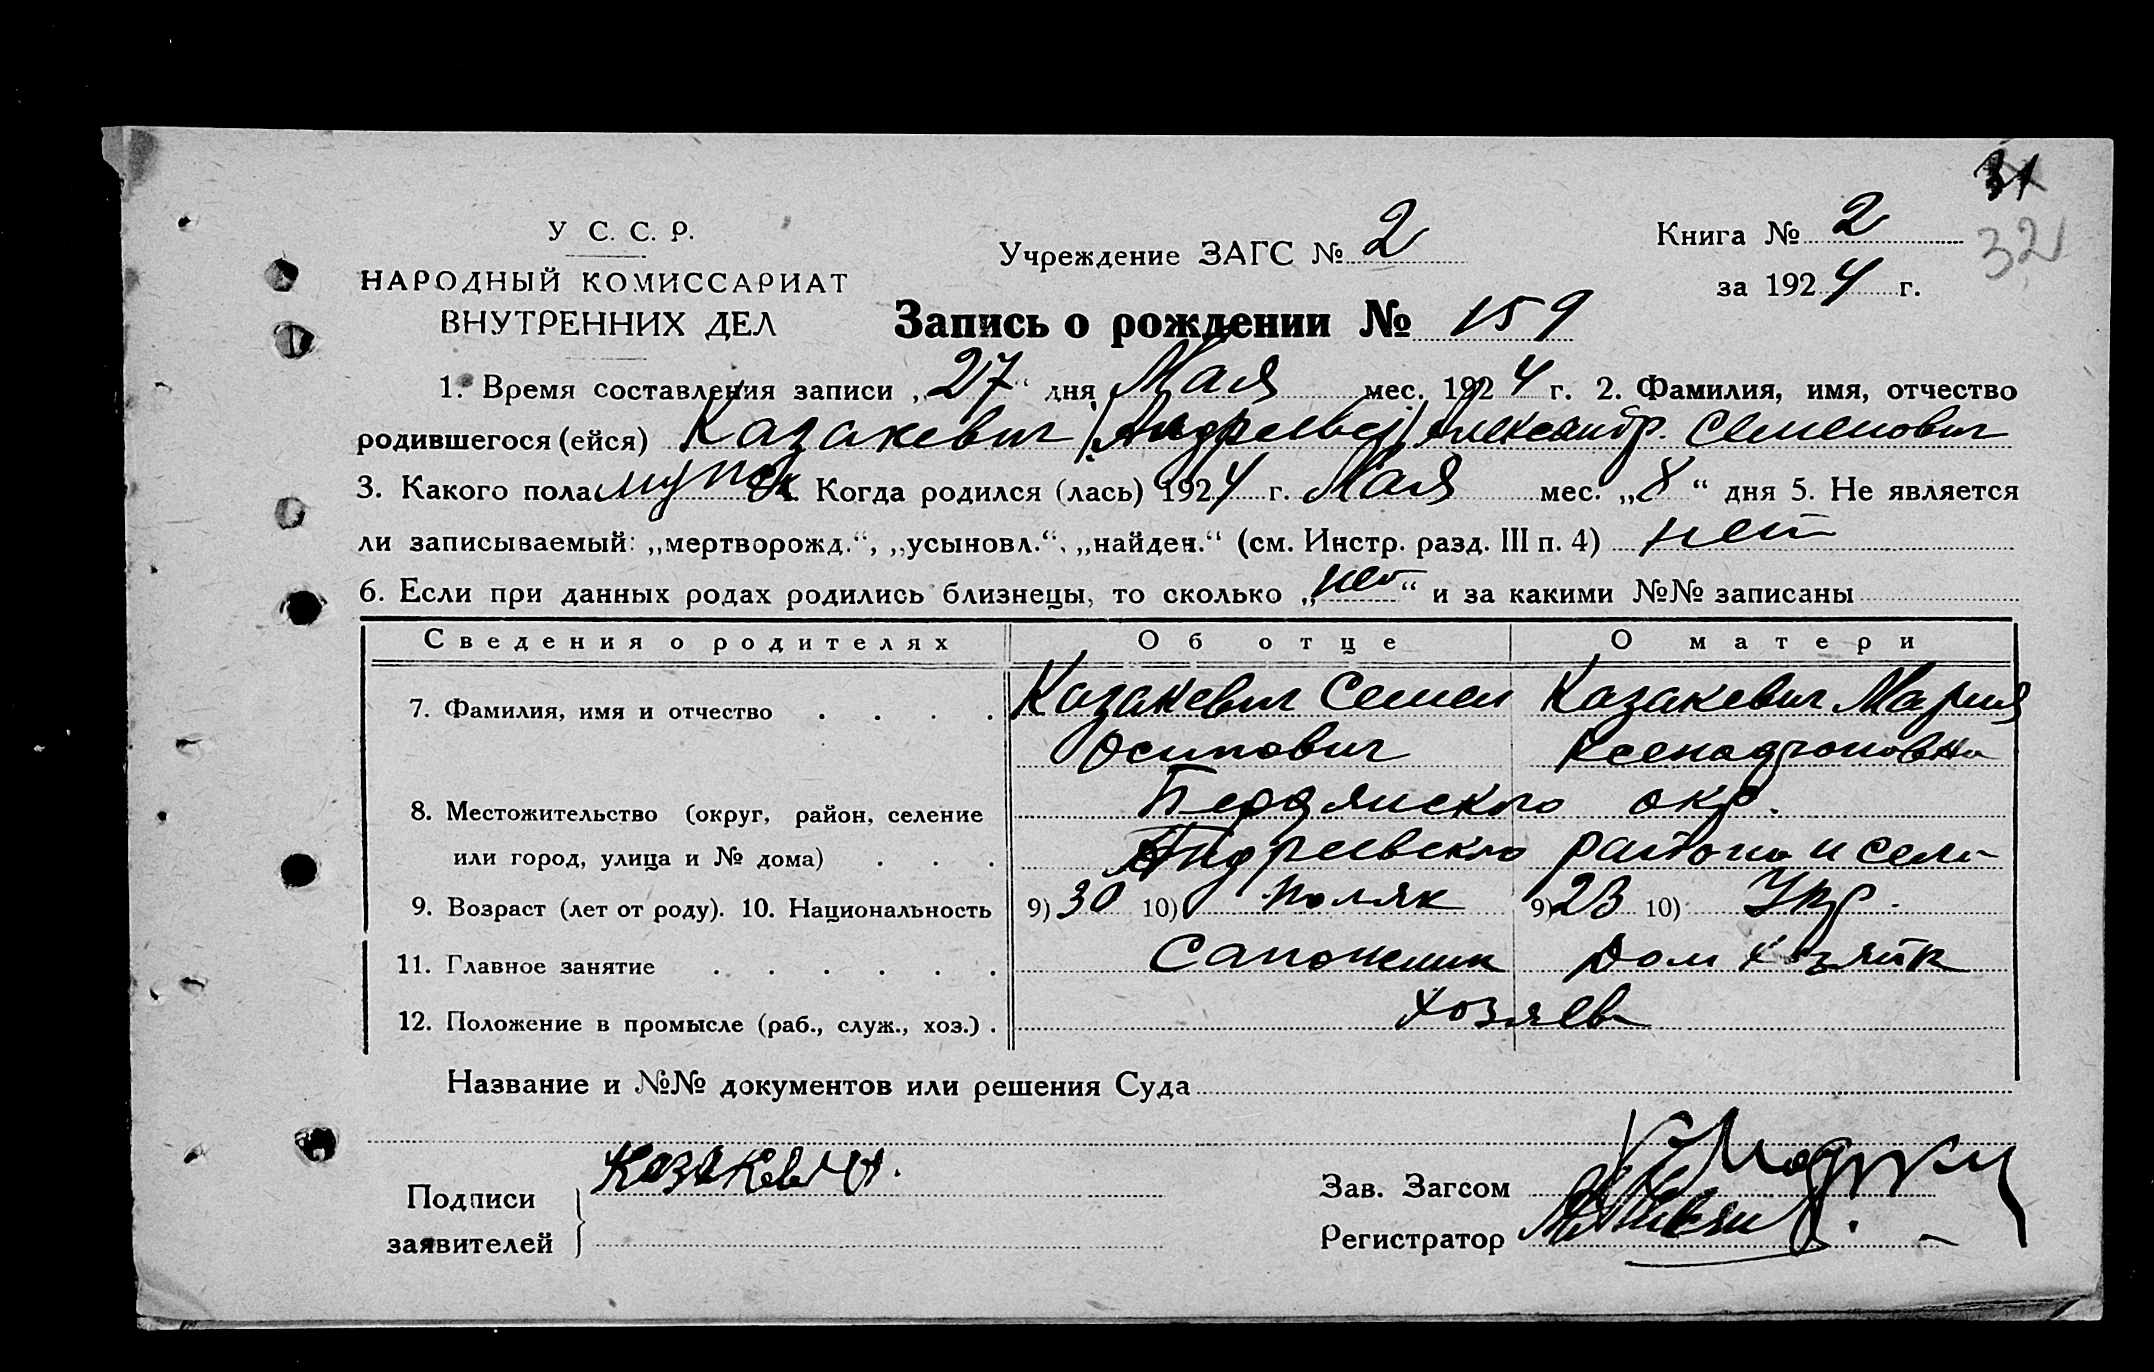 31
32
У С. С. Р.
НАРОДНЫЙ КОМИССАРИАТ
ВНУТРЕННИХ ДЕЛ
Учреждение ЗАГС № 2
Книга № 2
за 1924 г.
Запись о рождении № 159
1. Время составления записи „27“ дня Мая мес. 1924 г. 2. Фамилия, имя, отчество
родившегося (ейся) Казакевич Александр. Семенович
3. Какого пола муж. Когда родился (лась) 1924 г. Мая мес. „8“ дня 5. Не является
ли записываемый: „мертворожд.“, „усыновл.“, „найден.“ (см. Инстр. разд. III п. 4) нет
6. Если при данных родах родились близнецы, то сколько „нет“ и за какими №№ записаны
Сведения о родителях Об отце О матери
7. Фамилия, имя и отчество . . . . Казакевич Семен Казакевич Мария
Осипович
8. Местожительство (округ, район, селение Бердянского окр.
или город, улица и № дома) . . . Андреевского района и села
9. Возраст (лет от роду). 10. Национальность 9) 30 10) поляк 9) 23 10) Укр.
11. Главное занятие . . . . . . Сапожник Дом хозяйк
12. Положение в промысле (раб., служ., хоз.) . хозяев
Название и №№ документов или решения Суда
Подписи
заявителей
Казакевич.
Зав. Загсом
Регистратор